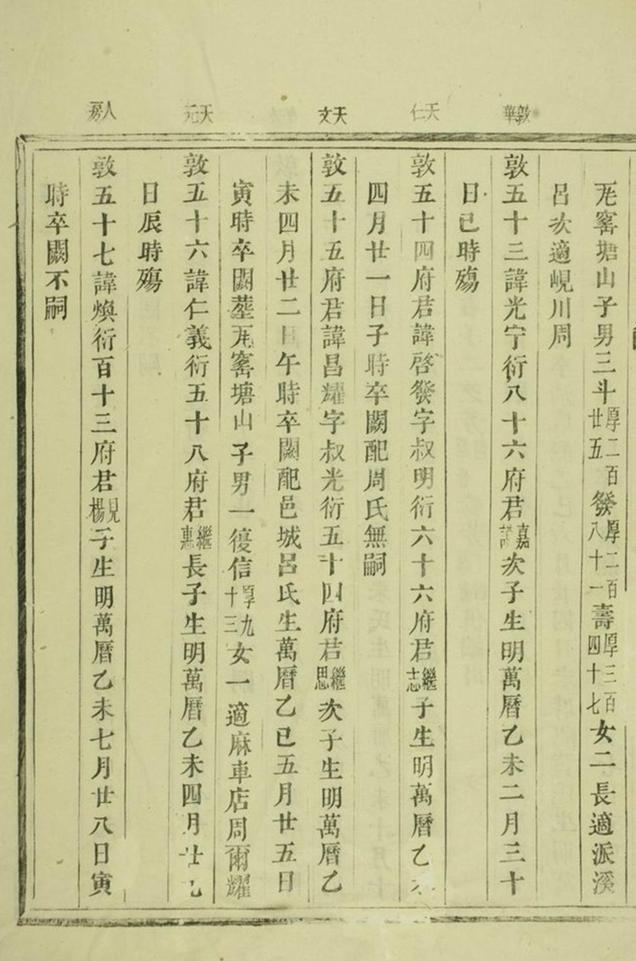 敦華
天仁
天文
天元
人房
茺窰塘山子男三斗厚二百廿五發厚二百八十一壽厚三百四十七女二長適派溪
呂次適峴川周
敦五十三諱光宁衍八十六府君嘉次子生明萬曆乙未二月三十
日巳時殤
敦五十四府君諱啓發字叔明衍六十六府君繼志子生明萬曆乙
四月廿一日子時卒闕配周氏無嗣
敦五十五府君諱昌耀字叔光衍五十四府君繼思次子生明萬曆乙
未四月廿二日午時卒闕配邑城呂氏生萬曆乙巳五月廿五日
寅時卒闕塟窰塘山子男一復信厚九十三女一適麻車店周爾耀
敦五十六諱仁義衍五十八府君繼惠長子生明萬曆乙未四月廿七
日辰時殤
敦五十七諱煥衍百十三府君見楊子生明萬曆乙未七月廿八日寅
時卒闕不嗣